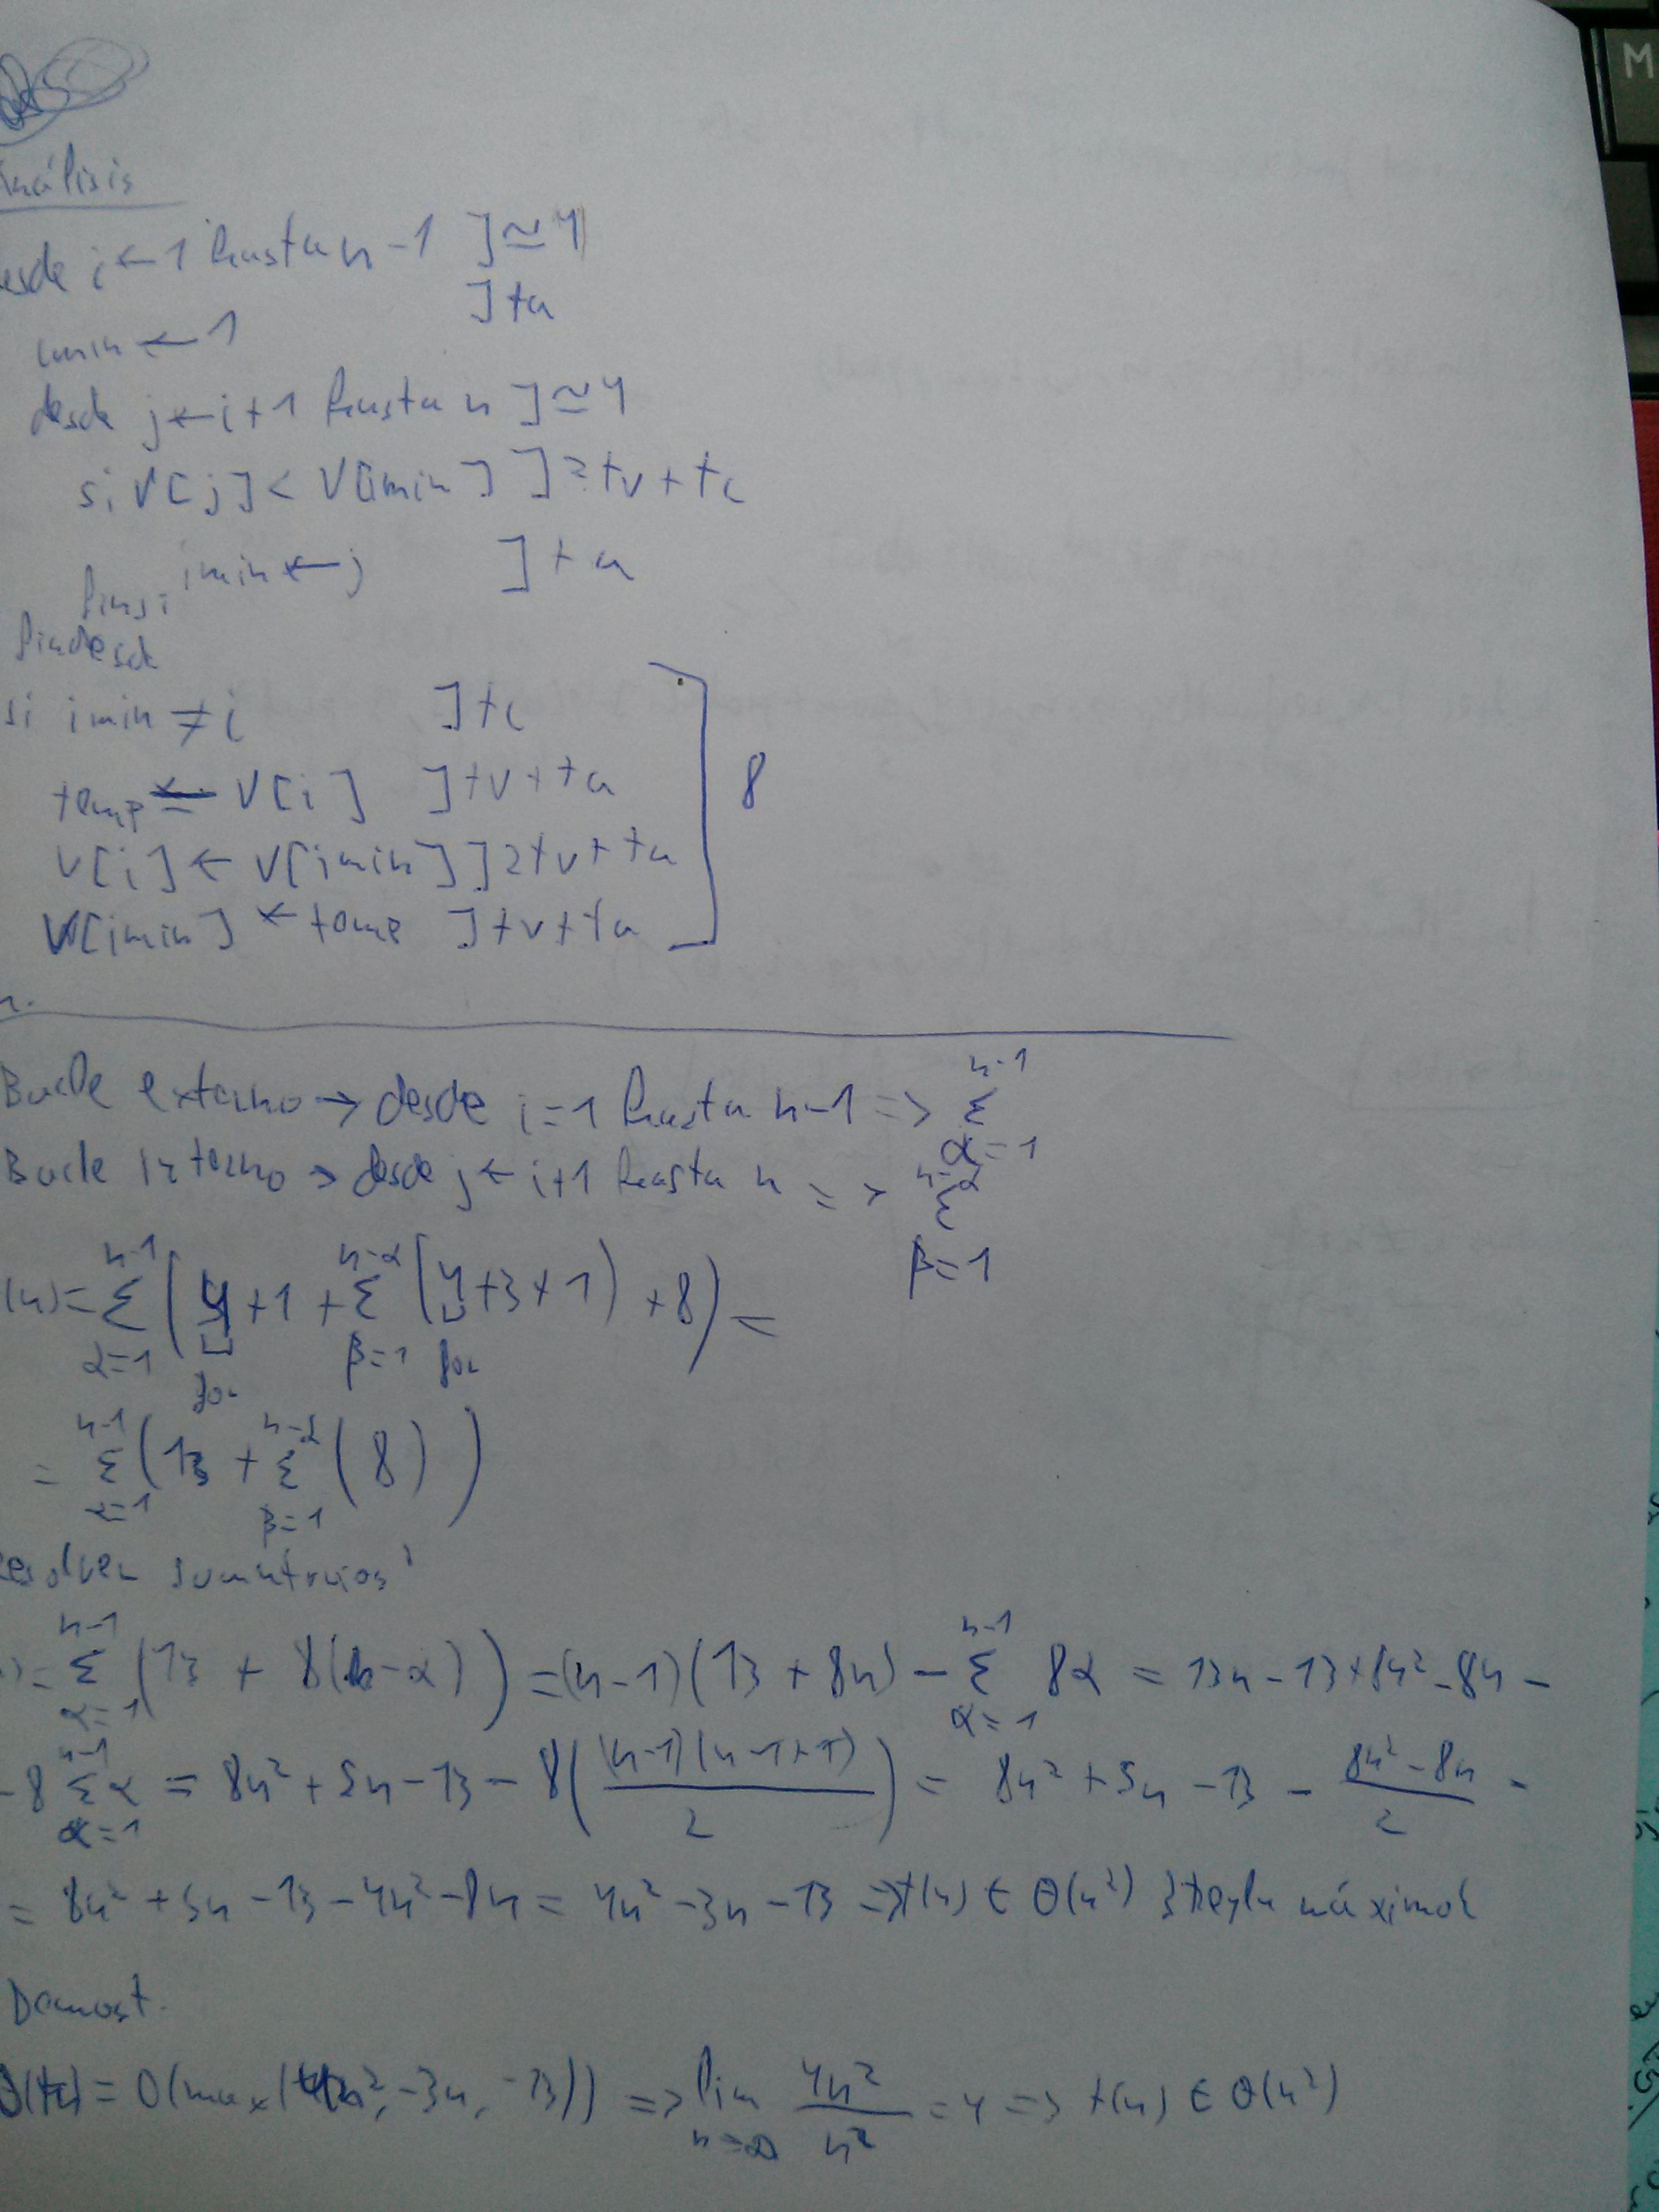 Análisis
desde i ← 1 hasta n-1 ] ≃ 4
] ta
imin ← 1
desde j ← i+1 hasta n ] ≃ 4
si V[j] < V[imin] ] 2tv + tc
imin ← j ] ta
finsi
findesde
si imin ≠ i ] tc
temp ← V[i] ] tv + ta
V[i] ← V[imin] ] 2tv + ta
V[imin] ← temp ] tv + ta
8
Bucle externo → desde i=1 hasta n-1 => Σ_{α=1}^{n-1}
Bucle interno → desde j ← i+1 hasta n => Σ_{β=1}^{n-α}
(n) = Σ_{α=1}^{n-1} (4 + 1 + Σ_{β=1}^{n-α} (4 + 3 + 1) + 8) =
for for
= Σ_{α=1}^{n-1} (13 + Σ_{β=1}^{n-α} (8))
resolver sumatorios
) = Σ_{α=1}^{n-1} (13 + 8(n-α)) = (n-1)(13 + 8n) - Σ_{α=1}^{n-1} 8α = 13n - 13 + 8n² - 8n -
- 8 Σ_{α=1}^{n-1} α = 8n² + 5n - 13 - 8((n-1)(n-1+1)/2) = 8n² + 5n - 13 - (8n² - 8n)/2 =
= 8n² + 5n - 13 - 4n² - 8n = 4n² - 3n - 13 => t(n) ∈ Θ(n²) {regla máximo}
Demost.
= O(max(4n², -3n, -13)) => lim_{n→∞} 4n²/n² = 4 => t(n) ∈ Θ(n²)
M